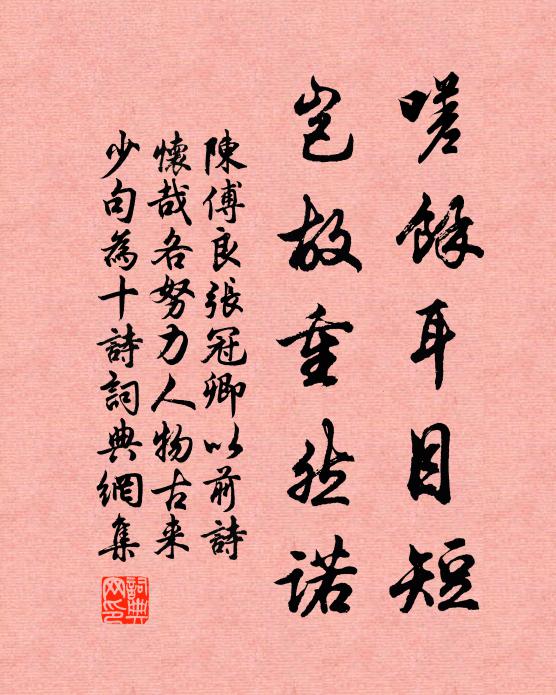 嗟餘耳目短
豈故重然諾
陳傅良張冠卿以前詩
懷哉各努力人物古来
少句為十詩詞典網集
詞典網印